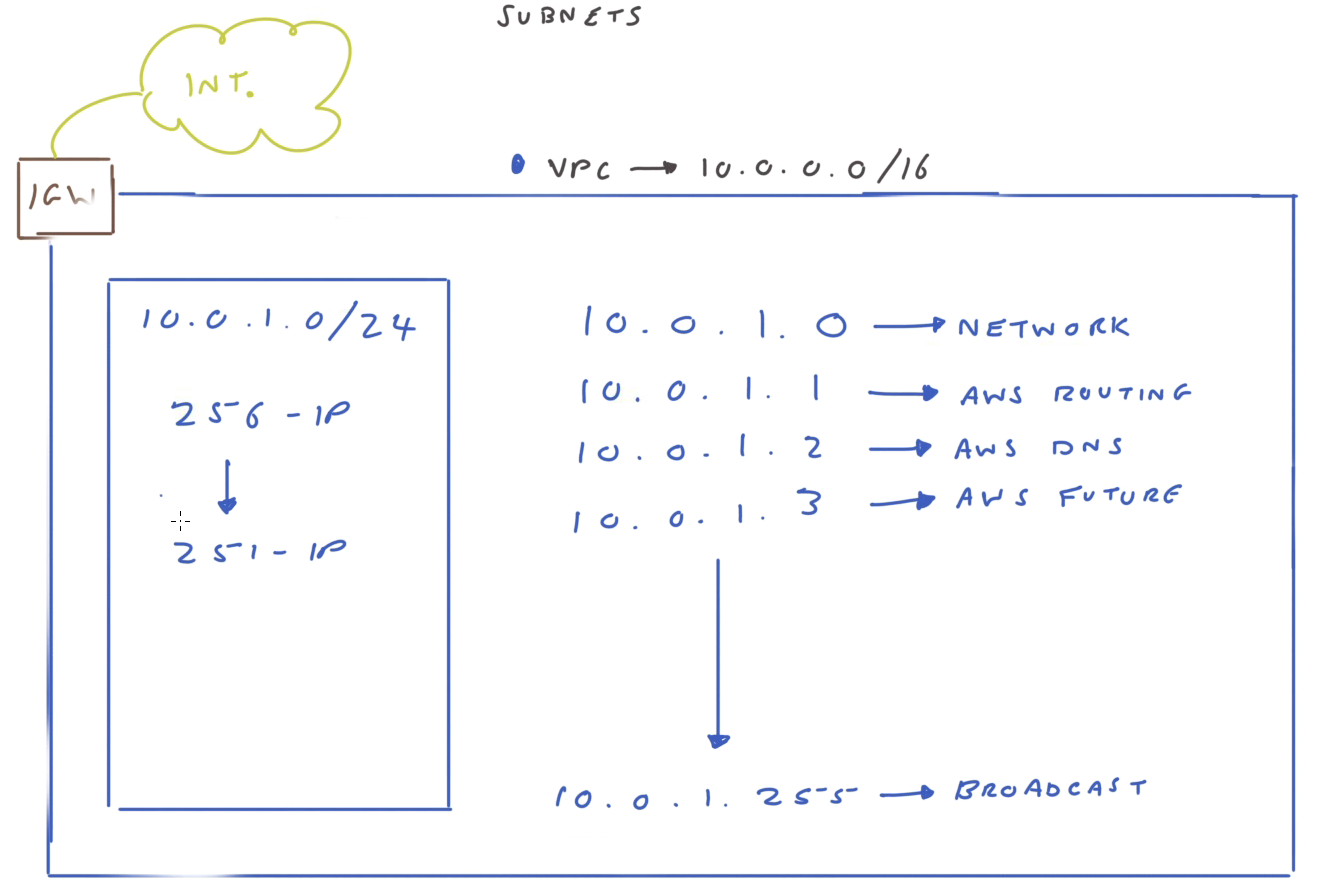 SUBNETS
INT.
VPC → 10.0.0.0/16
IGW
10.0.1.0/24
256-IP
251-IP
10.0.1.0 → NETWORK
10.0.1.1 → AWS ROUTING
10.0.1.2 → AWS DNS
10.0.1.3 → AWS FUTURE
10.0.1.255 → BROADCAST